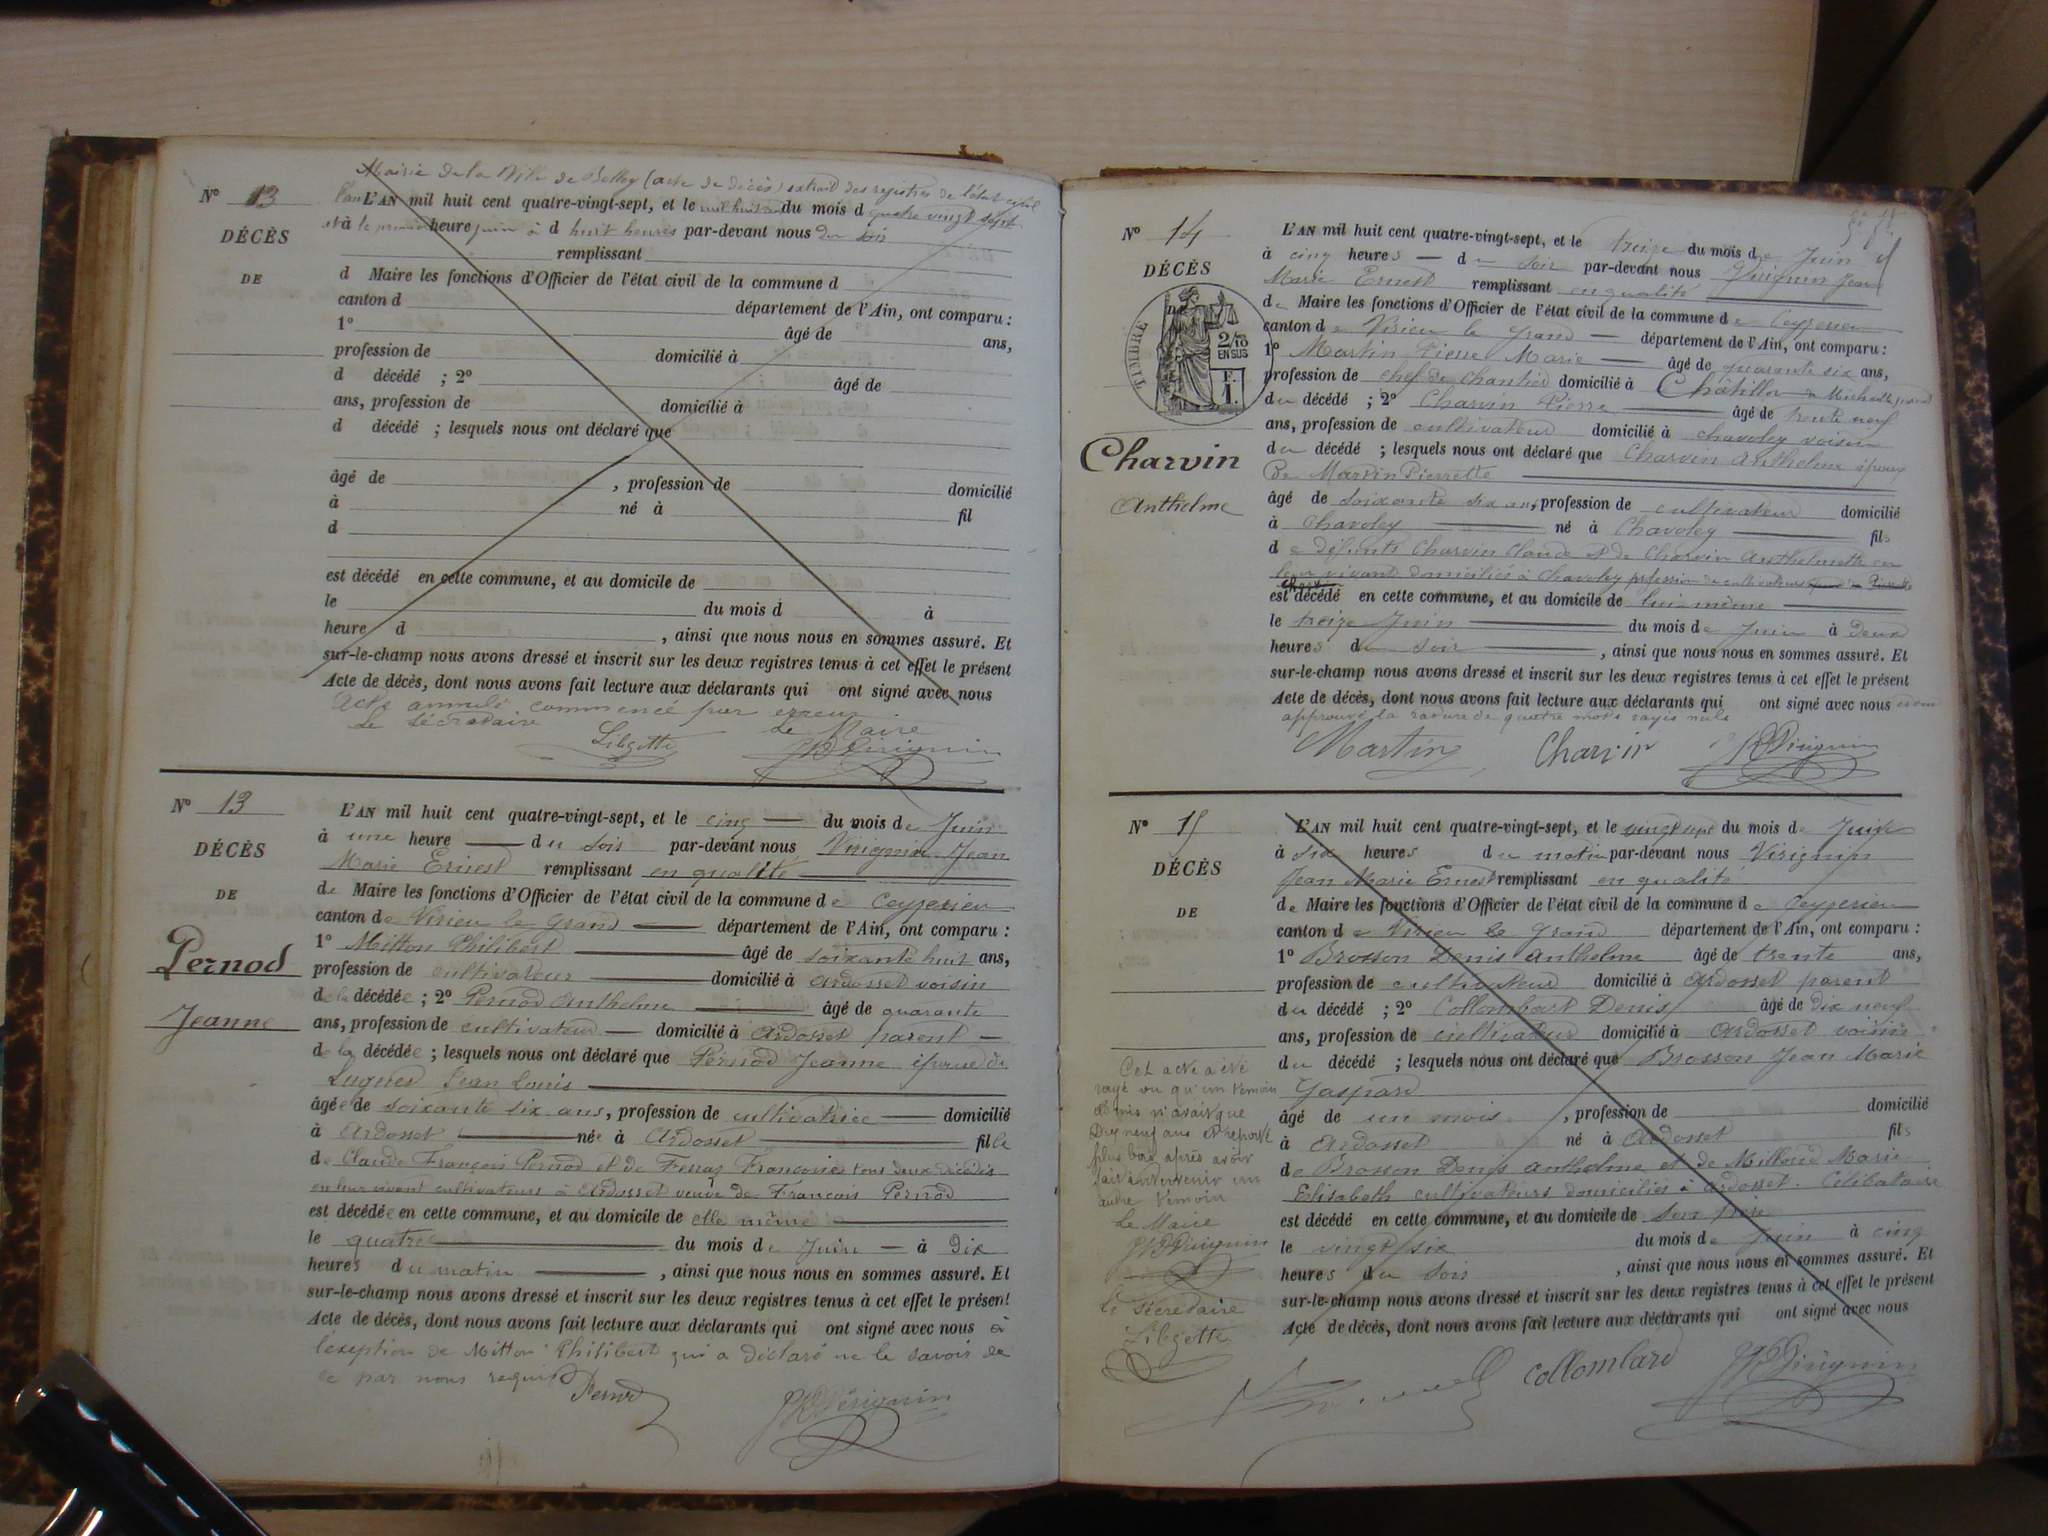 Mairie de la Ville de Belley (acte de décès) extrait des registres de l'état civil
N° 13
L'an L'AN mil huit cent quatre-vingt-sept, et le mil huit cent du mois d quatre vingt sept
DÉCÈS
et à le premier heure juin à d huit heures par-devant nous du soir
remplissant
DE
d Maire les fonctions d'Officier de l'état civil de la commune d
canton d département de l'Ain, ont comparu :
1° âgé de ans,
profession de domicilié à
d décédé ; 2° âgé de
ans, profession de domicilié à
d décédé ; lesquels nous ont déclaré que
âgé de , profession de domicilié
à né à fil
d
est décédé en cette commune, et au domicile de
le du mois d à
heure d , ainsi que nous nous en sommes assuré. Et
sur-le-champ nous avons dressé et inscrit sur les deux registres tenus à cet effet le présent
Acte de décès, dont nous avons fait lecture aux déclarants qui ont signé avec nous
Acte annulé commencé par erreur
Le Sécrétaire Le Maire
N° 13
DÉCÈS
DE
Pernod
Jeanne
L'AN mil huit cent quatre-vingt-sept, et le cinq du mois de Juin
à une heure du soir par-devant nous Virignin Jean
Marie Ernest remplissant en qualité
de Maire les fonctions d'Officier de l'état civil de la commune de Ceyzerieu
canton de Virieu le grand département de l'Ain, ont comparu :
1° Mitton Philibert âgé de soixante huit ans,
profession de cultivateur domicilié à Ardosset voisin
de la décédée ; 2° Pernod Anthelme âgé de quarante
ans, profession de cultivateur domicilié à Ardosset parent
de la décédée ; lesquels nous ont déclaré que Pernod Jeanne épouse de
Jean Louis
âgée de soixante six ans, profession de cultivatrice domicilié
à Ardosset née à Ardosset fille
de Claude François Pernod et de Ferraz Françoise tous deux décédés
en leur vivant cultivateurs à Ardosset veuve de François Pernod
est décédée en cette commune, et au domicile de elle même
le quatre du mois de Juin à Dix
heures du matin , ainsi que nous nous en sommes assuré. Et
sur-le-champ nous avons dressé et inscrit sur les deux registres tenus à cet effet le présent
Acte de décès, dont nous avons fait lecture aux déclarants qui ont signé avec nous à
l'exeption de Mitton Philibert qui a déclaré ne le savoir de
ce par nous requis
Pernod JM Virignin
N° 14
DÉCÈS
DE
TIMBRE
2/10
EN SUS
F.
1.
Charvin
Anthelme
L'AN mil huit cent quatre-vingt-sept, et le treize du mois de Juin
à cinq heures du soir par-devant nous Virignin Jean
Marie Ernest remplissant en qualité
de Maire les fonctions d'Officier de l'état civil de la commune de Ceyzerieu
canton de Virieu le grand département de l'Ain, ont comparu :
1° Martin Pierre Marie âgé de quarante six ans,
profession de chef de chantier domicilié à Châtillon de Michaille
du décédé ; 2° Charvin Pierre âgé de trente neuf
ans, profession de cultivateur domicilié à Chavoley voisin
du décédé ; lesquels nous ont déclaré que Charvin Anthelme époux
De Martin Pierrette
âgé de soixante six ans, profession de cultivateur domicilié
à Chavoley né à Chavoley fils
de défunts Charvin Claude et de Charvin Anthelmette en
leur vivant domiciliés à Chavoley profession de cultivateurs
est décédé en cette commune, et au domicile de lui même
le treize Juin du mois de Juin à Deux
heures du soir , ainsi que nous nous en sommes assuré. Et
sur-le-champ nous avons dressé et inscrit sur les deux registres tenus à cet effet le présent
Acte de décès, dont nous avons fait lecture aux déclarants qui ont signé avec nous
approuvé la rature de quatre mots rayés nuls
Martin Charvin JM Virignin
N° 15
DÉCÈS
DE
L'AN mil huit cent quatre-vingt-sept, et le vingt sept du mois de Juin
à six heures du matin par-devant nous Virignin
Jean Marie Ernest remplissant en qualité
de Maire les fonctions d'Officier de l'état civil de la commune de Ceyzerieu
canton de Virieu le grand département de l'Ain, ont comparu :
1° Brosson Denis Anthelme âgé de trente ans,
profession de cultivateur domicilié à Ardosset parent
du décédé ; 2° Collombard Denis âgé de Dix neuf
ans, profession de cultivateur domicilié à Ardosset voisin
du décédé ; lesquels nous ont déclaré que Brosson Jean Marie
Gaspard
âgé de un mois , profession de domicilié
à Ardosset né à Ardosset fils
de Brosson Denis Anthelme et de Milloud Marie
Elisabeth cultivateurs domiciliés à Ardosset. Célibataire
est décédé en cette commune, et au domicile de son père
le vingt six du mois de Juin à cinq
heures du soir , ainsi que nous nous en sommes assuré. Et
sur-le-champ nous avons dressé et inscrit sur les deux registres tenus à cet effet le présent
Acte de décès, dont nous avons fait lecture aux déclarants qui ont signé avec nous
Collombard JM Virignin
Cet acte a été
rayé vu qu'un témoin
Denis n'avait que
Dix neuf ans et reporté
plus bas après avoir
fait intervenir un
autre témoin
Le Maire
JM Virignin
le Sécrétaire